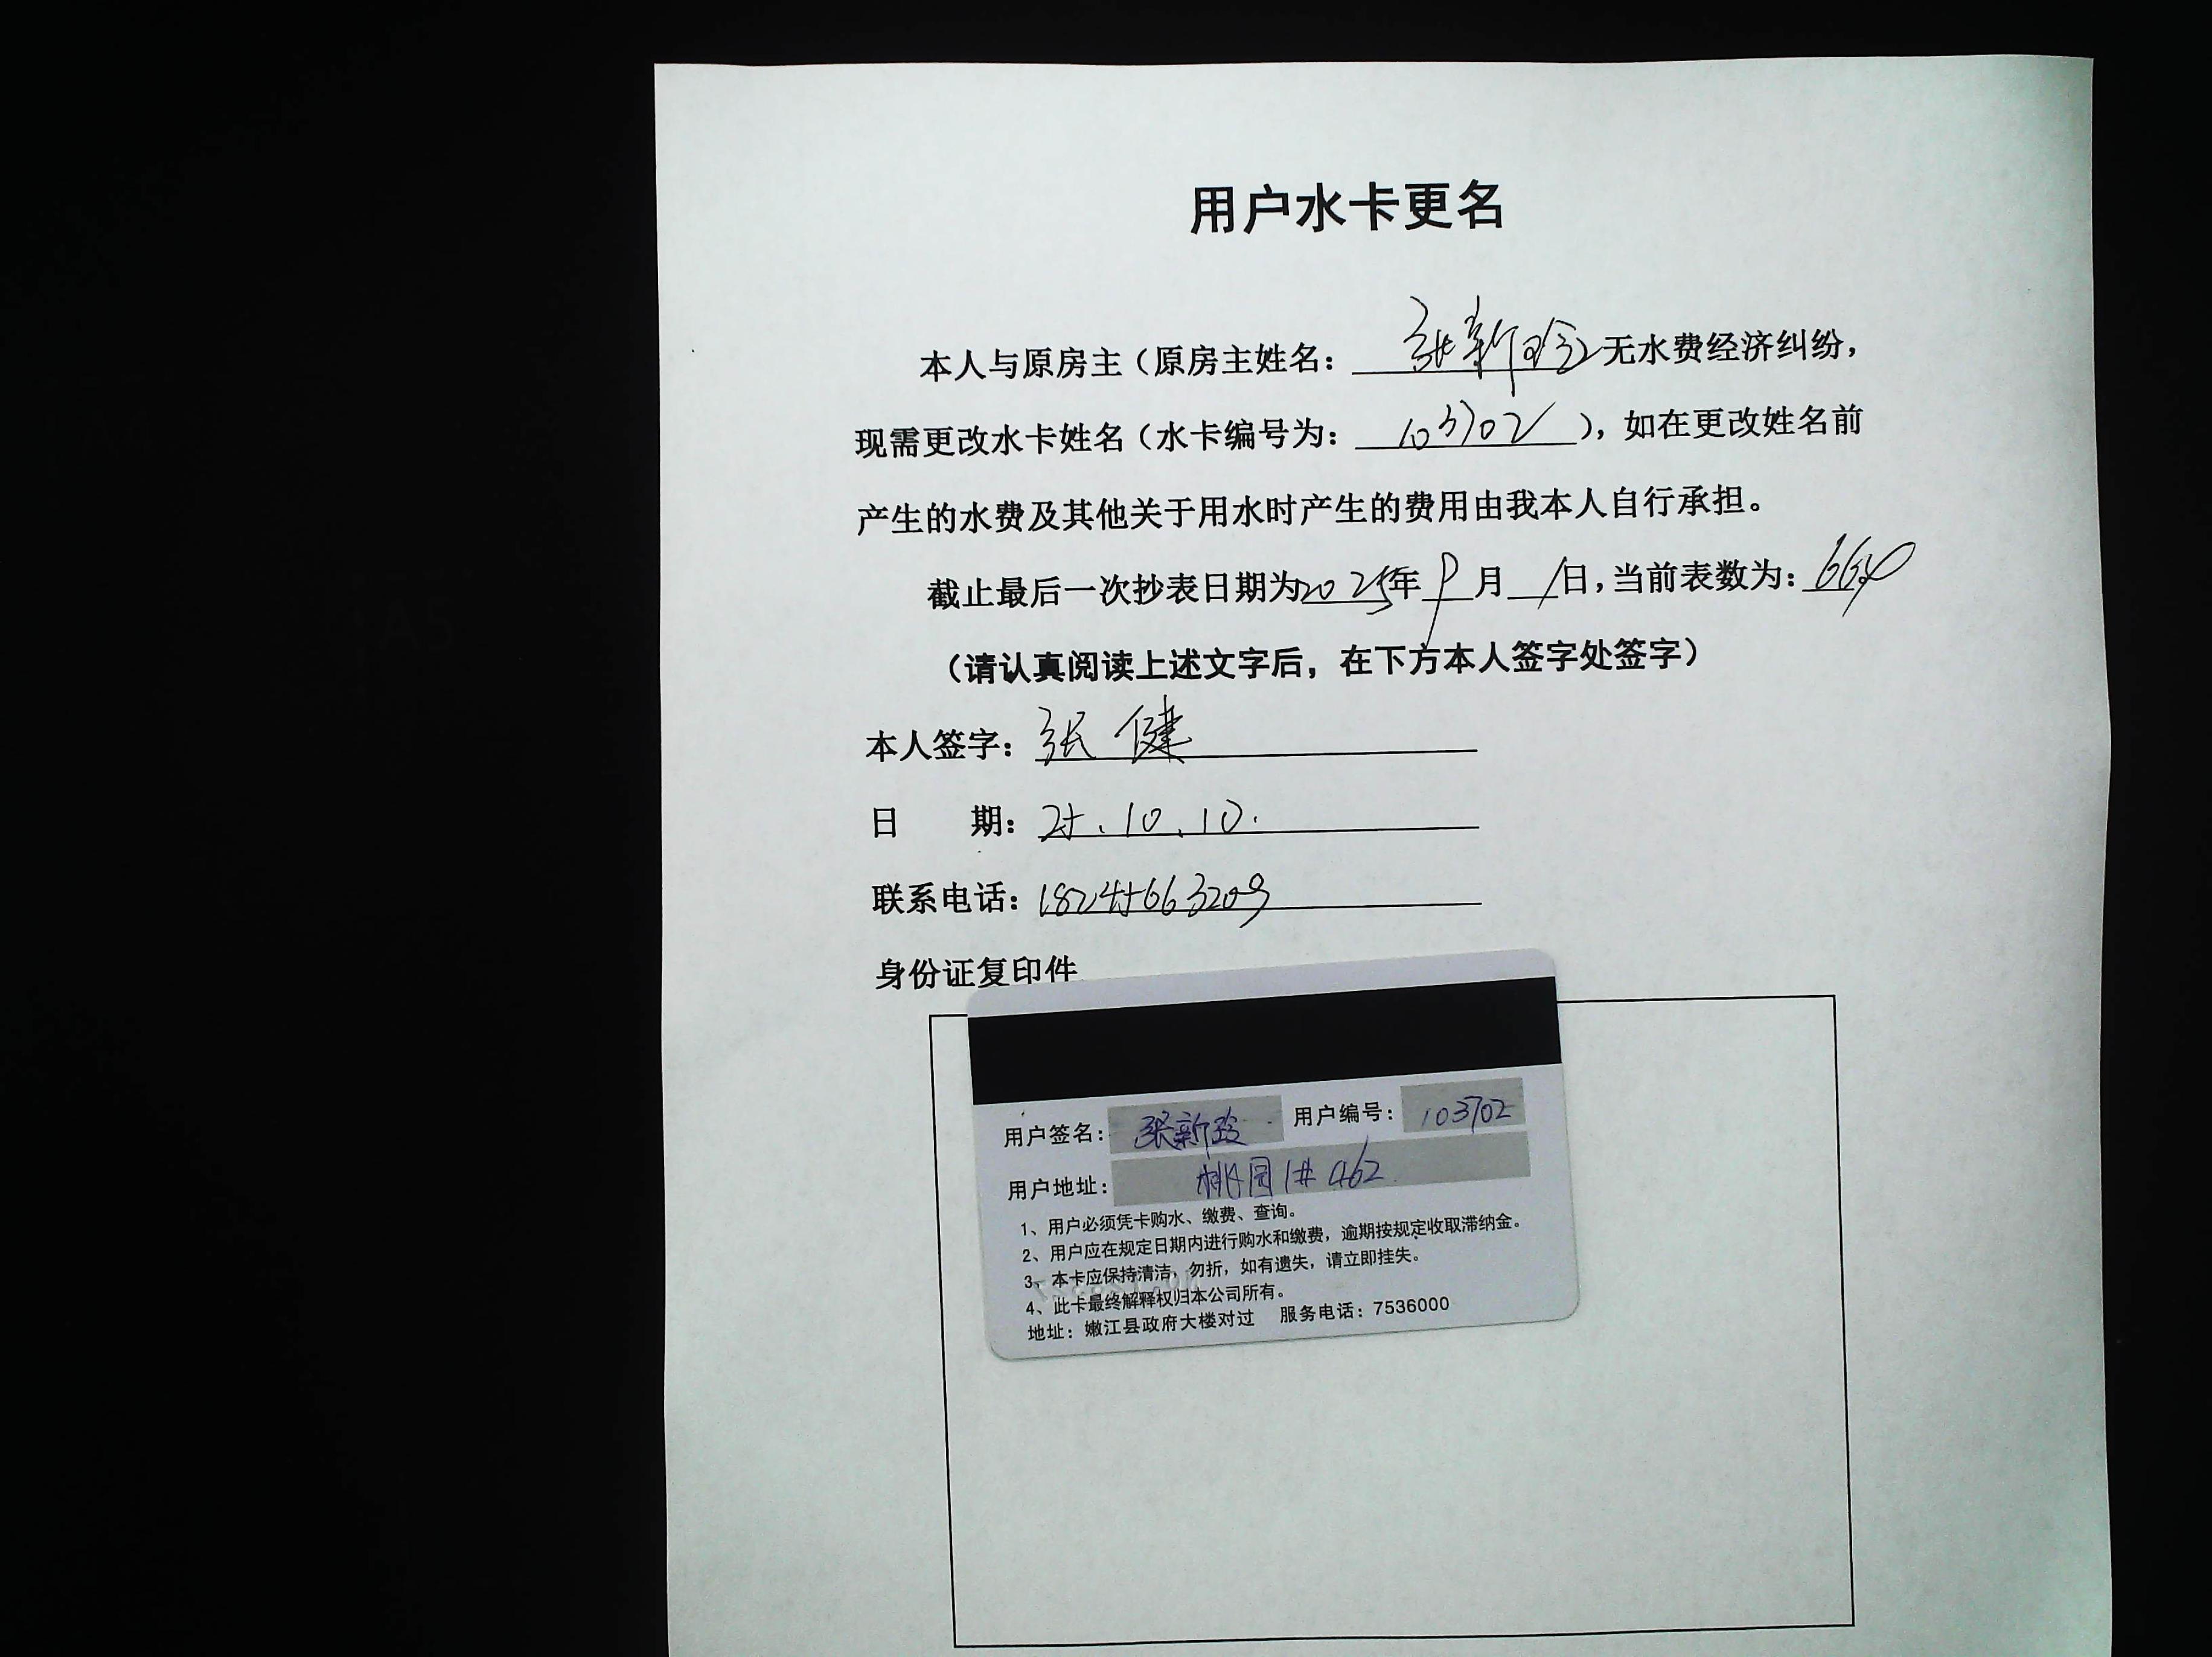 用户水卡更名
本人与原房主（原房主姓名：张新玲无水费经济纠纷，
现需更改水卡姓名（水卡编号为：103702），如在更改姓名前
产生的水费及其他关于用水时产生的费用由我本人自行承担。
截止最后一次抄表日期为2025年9月1日，当前表数为：
（请认真阅读上述文字后，在下方本人签字处签字）
本人签字：张健
日 期：25.10.10.
联系电话：18245663209
身份证复印件
用户签名：张新玲 用户编号：103702
用户地址：桃园1#462
1、用户必须凭卡购水、缴费、查询。
2、用户应在规定日期内进行购水和缴费，逾期按规定收取滞纳金。
3、本卡应保持清洁，勿折，如有遗失，请立即挂失。
4、此卡最终解释权归本公司所有。
地址：嫩江县政府大楼对过 服务电话：7536000